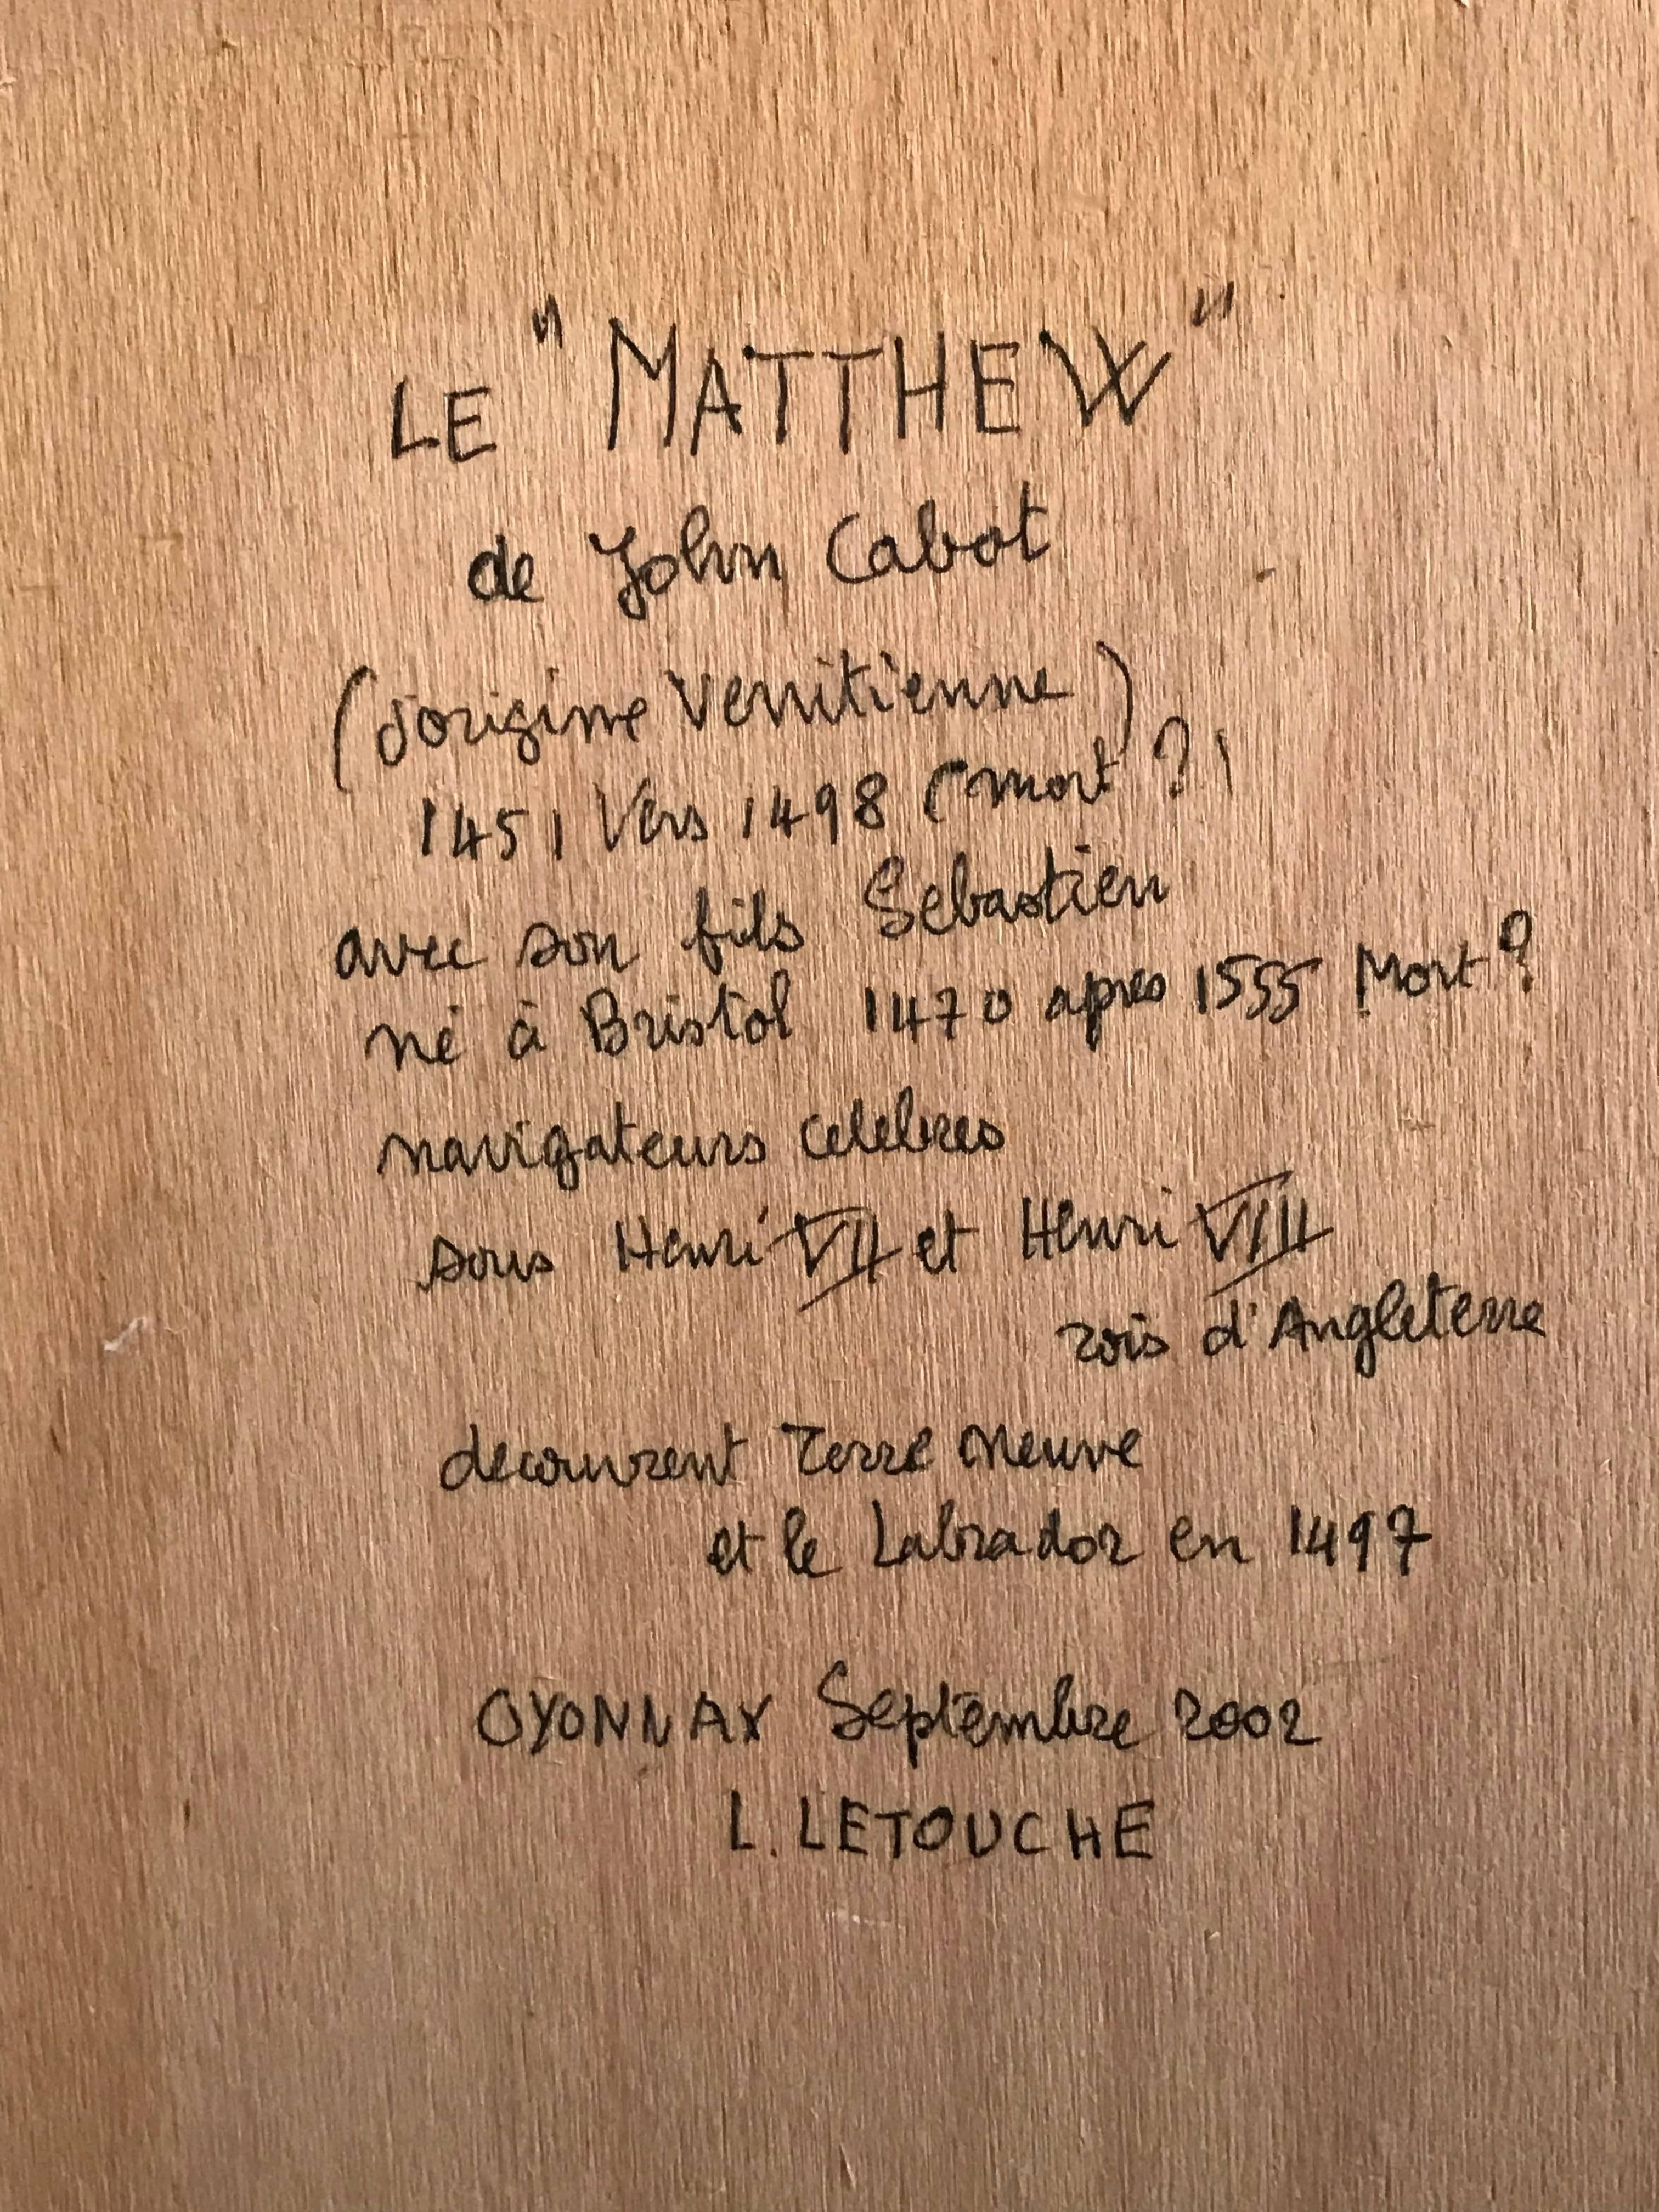 LE "MATTHEW"
de John Cabot
(d'origine Venitienne)
1451 Vers 1498 (mort ?)
avec son fils Sebastien
né à Bristol 1470 apres 1555 Mort ?
navigateurs celebres
sous Henri VII et Henri VIII
rois d'Angleterre
decouvrent Terre Neuve
et le Labrador en 1497
OYONNAX Septembre 2002
L. LETOUCHE